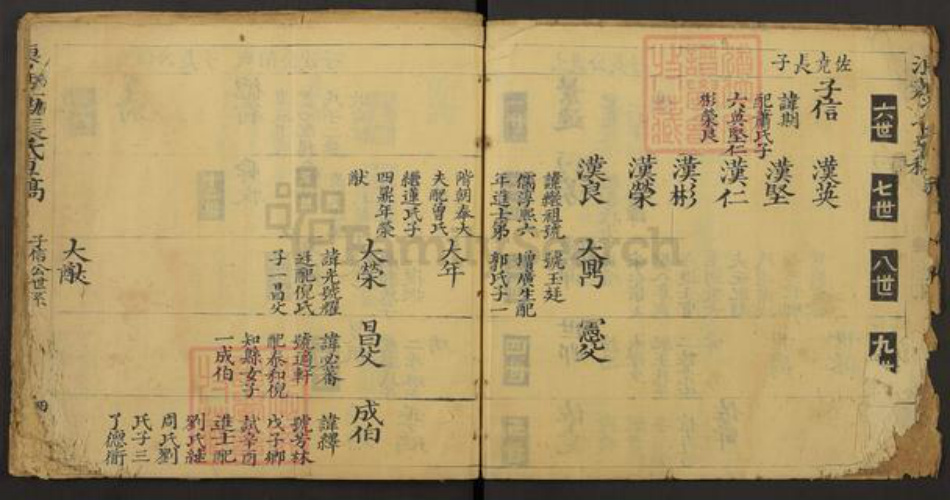 六世
七世
八世
九世
佐堯長子
子信
諱期
配蕭氏子
六英堅仁
彬榮良
漢英
漢堅
漢仁
漢彬
漢榮
漢良
諱繼祖號
儒淳熙六
年進士第
大禺
號玉廷
增廣生配
郭氏子一
憲父
階朝奉大
夫配曾氏
繼蓮氏子
四異年榮
猷
大年
大榮
諱光號耀
廷配倪氏
子一昌父
昌父
諱必蕃
號適軒
配泰和倪
知縣女子
一成伯
成伯
諱繹
號芳林
戊子鄉
試辛酉
進士配
劉氏繼
周氏劉
氏子三
了德衜
大猷
子信公世系
FamilySearch